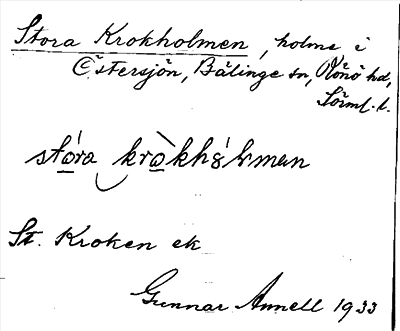 Stora Krokholmen, holme i
Östersjön, Bälinge sn, Rönö hd,
Sörml. l.
stóra kròkhólmen
St. Kroken ek
Gunnar Annell 1933